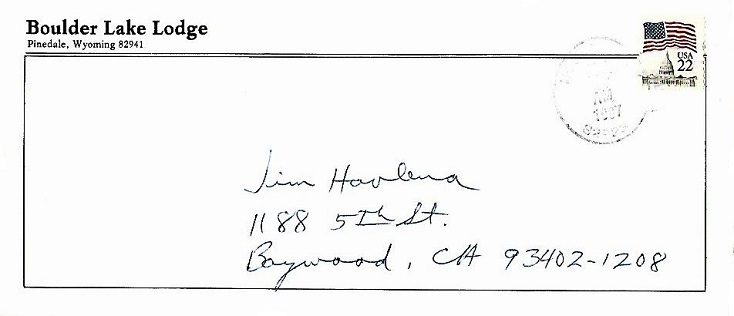 Boulder Lake Lodge
Pinedale, Wyoming 82941
USA
22
AM
1987
Jim Havlena
1188 5Th St.
Baywood, CA 93402-1208